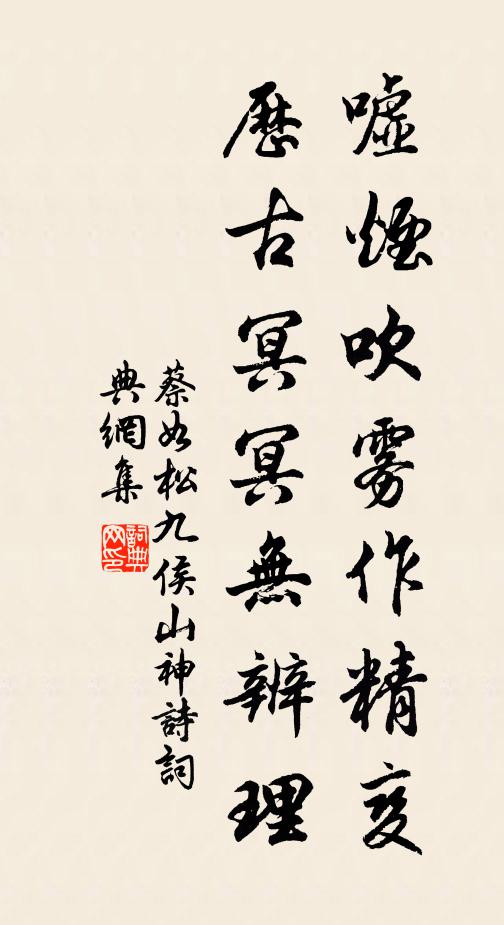 嘘煙吹雾作精变
歷古冥冥無辨理
蔡如松九侯山神詩詞
典網集
詞典
网印